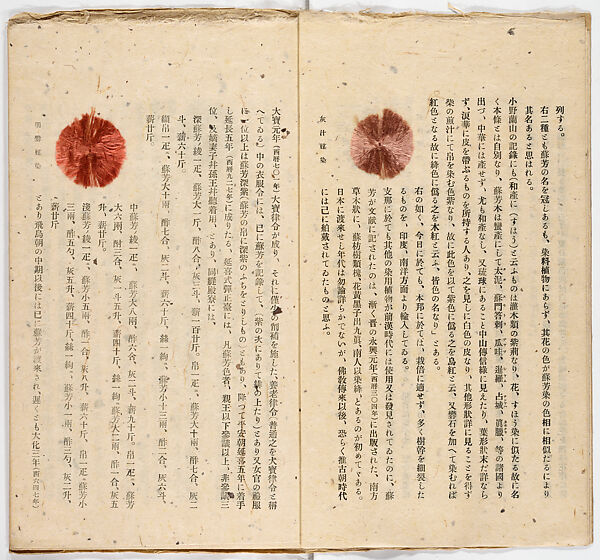 列する。
右二種とも蘇芳の名を冠しあるも、染料植物にあらず、其花の色が蘇芳染の色相に相似たるにより
其名あると思はれる。
小野蘭山の記錄にも「和產に（すはう）と云ふものは灌木類の紫荊なり、花、すほう染に似たる故に名
く本條とは自別なり、蘇方木は蠻產にして太泥、蘇門答剌、瓜哇、暹羅、占城、眞臘、等の諸國より
出づ、中華には產せず、尤も和產なし、又琉球にあること中山傳信錄に見えたり、葉形狀未だ詳なら
ず、漠華に皮を帶ぶるものを所持する人あり、之を見しに白色の皮なり、其他形狀詳に見ることを得ず
染の煎汁にて帛を染む色紫なり、故に此色を以て紫色に僞る之を烏紅と云、又礬石を加へて染むれば
紅色となる故に緋色に僞る之を木紅と云ふ、皆色の名なり」とある。
右の如く、今日に於ても、本邦に於ては、栽倍に適せず、多く樹幹を細裂した
るものを、印度、南洋方面より輸入してゐる。
支那に於ても其他の染用植物が前漢時代には使用又は發見されてゐたのに、蘇
芳が文獻に記されたのは、漸く晋の永興元年（西曆三〇四年）に出版された、南方
草木狀に、蘇枋樹類槐、花黃黑子出九眞、南人以染絳、とあるのが初めてである。
日本に渡來せし年代は勿論詳らかでないが、佛敎傳來以後、恐らく推古朝時代
には已に舶戴されてゐたものと思ふ。
灰汁媒染
大寶元年（西曆七〇一年）大寶律令が成り、それに僅少の削補を施した、養老律令（普通之を大寶律令と稱
へてゐる）中の衣服令には、已に蘇芳を記錄して、（紫の次にありて緋の上たり）とあり又女官の禮服
に一位以上は蘇芳深紫（蘇芳の帛に深紫のふちをとりしもの）ともあり、降つて平安朝延喜五年に着手
し延長五年（西曆九二七年）に成りたる、延喜式彈正臺には、凡蘇芳色者、親王以下參議以上、非參議三
位、及嫡妻子幷孫王幷聽着用、とあり、同縫殿寮には、
深蘇芳、綾一疋、蘇芳大一斤、酢八合、灰三斗、薪一百廿斤。帛一疋、蘇芳大十兩、酢七合、灰二
斗、薪六十斤。
纈帛一疋、蘇芳大十兩、酢七合、灰二斗、薪六十斤、絲一絇、蘇芳小十三兩、酢二合、灰六斗、
薪廿斤。
中蘇芳、綾一疋、蘇芳大八兩、酢六合、灰二斗、薪九十斤。帛一疋、蘇芳
大六兩、酢二合、灰一斗五升、薪四十斤、絲一絇、蘇芳大二兩、酢一合、灰五
升、薪廿斤。
淺蘇芳、綾一疋、蘇芳小五兩、酢一合、灰八升、薪六十斤、帛一疋、蘇芳小
三兩、酢五勺、灰五升、薪四十斤、絲一絇、蘇芳小一兩、酢三勺、灰三升、
薪廿斤
とあり飛鳥朝の中期以後には已に蘇芳が渡來され、遲くとも大化三年（西六四七年）
明礬媒染